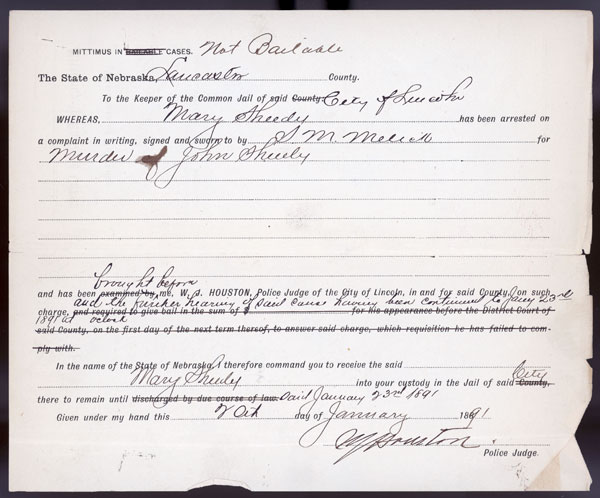 MITTIMUS IN BAILABLE CASES. Not Bailable
The State of Nebraska, Lancaster County.
To the Keeper of the Common Jail of said County City of Lincoln
WHEREAS, Mary Sheedy has been arrested on
a complaint in writing, signed and sworn to by S. M. Melick for
Murder of John Sheedy
brought before
and has been examined by me, W. S. HOUSTON, Police Judge of the City of Lincoln, in and for said County, on such
and the further hearing of said cause having been continued to Jany 23rd
charge, and required to give bail in the sum of $ for his appearance before the District Court of
1891 at oclock
said County, on the first day of the next term thereof, to answer said charge, which requisition he has failed to com-
ply with.
In the name of the State of Nebraska, I therefore command you to receive the said
Mary Sheedy into your custody in the Jail of said County, City
there to remain until discharged by due course of law. Said January 23rd 1891
Given under my hand this day of January 1891
W S Houston
Police Judge.